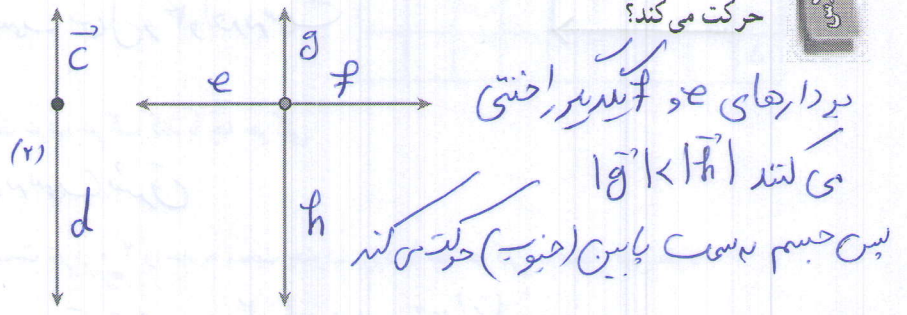 حرکت می کند؟
c⃗
g
e
f
بردارهای e و f یکدیگر را خنثی
(۲)
می کنند |g⃗|<|h⃗|
d
h
پس جسم به سمت پایین (جنوب) حرکت می کند